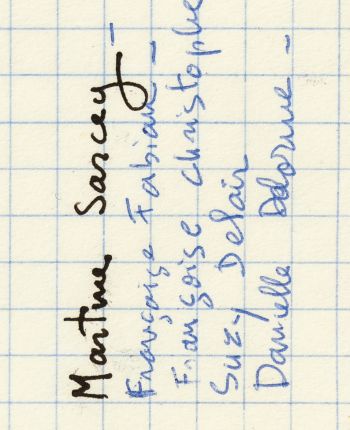 Martine Sarcey -
Françoise Fabian -
Françoise Christophe
Suzy Delair
Danielle Delorme -